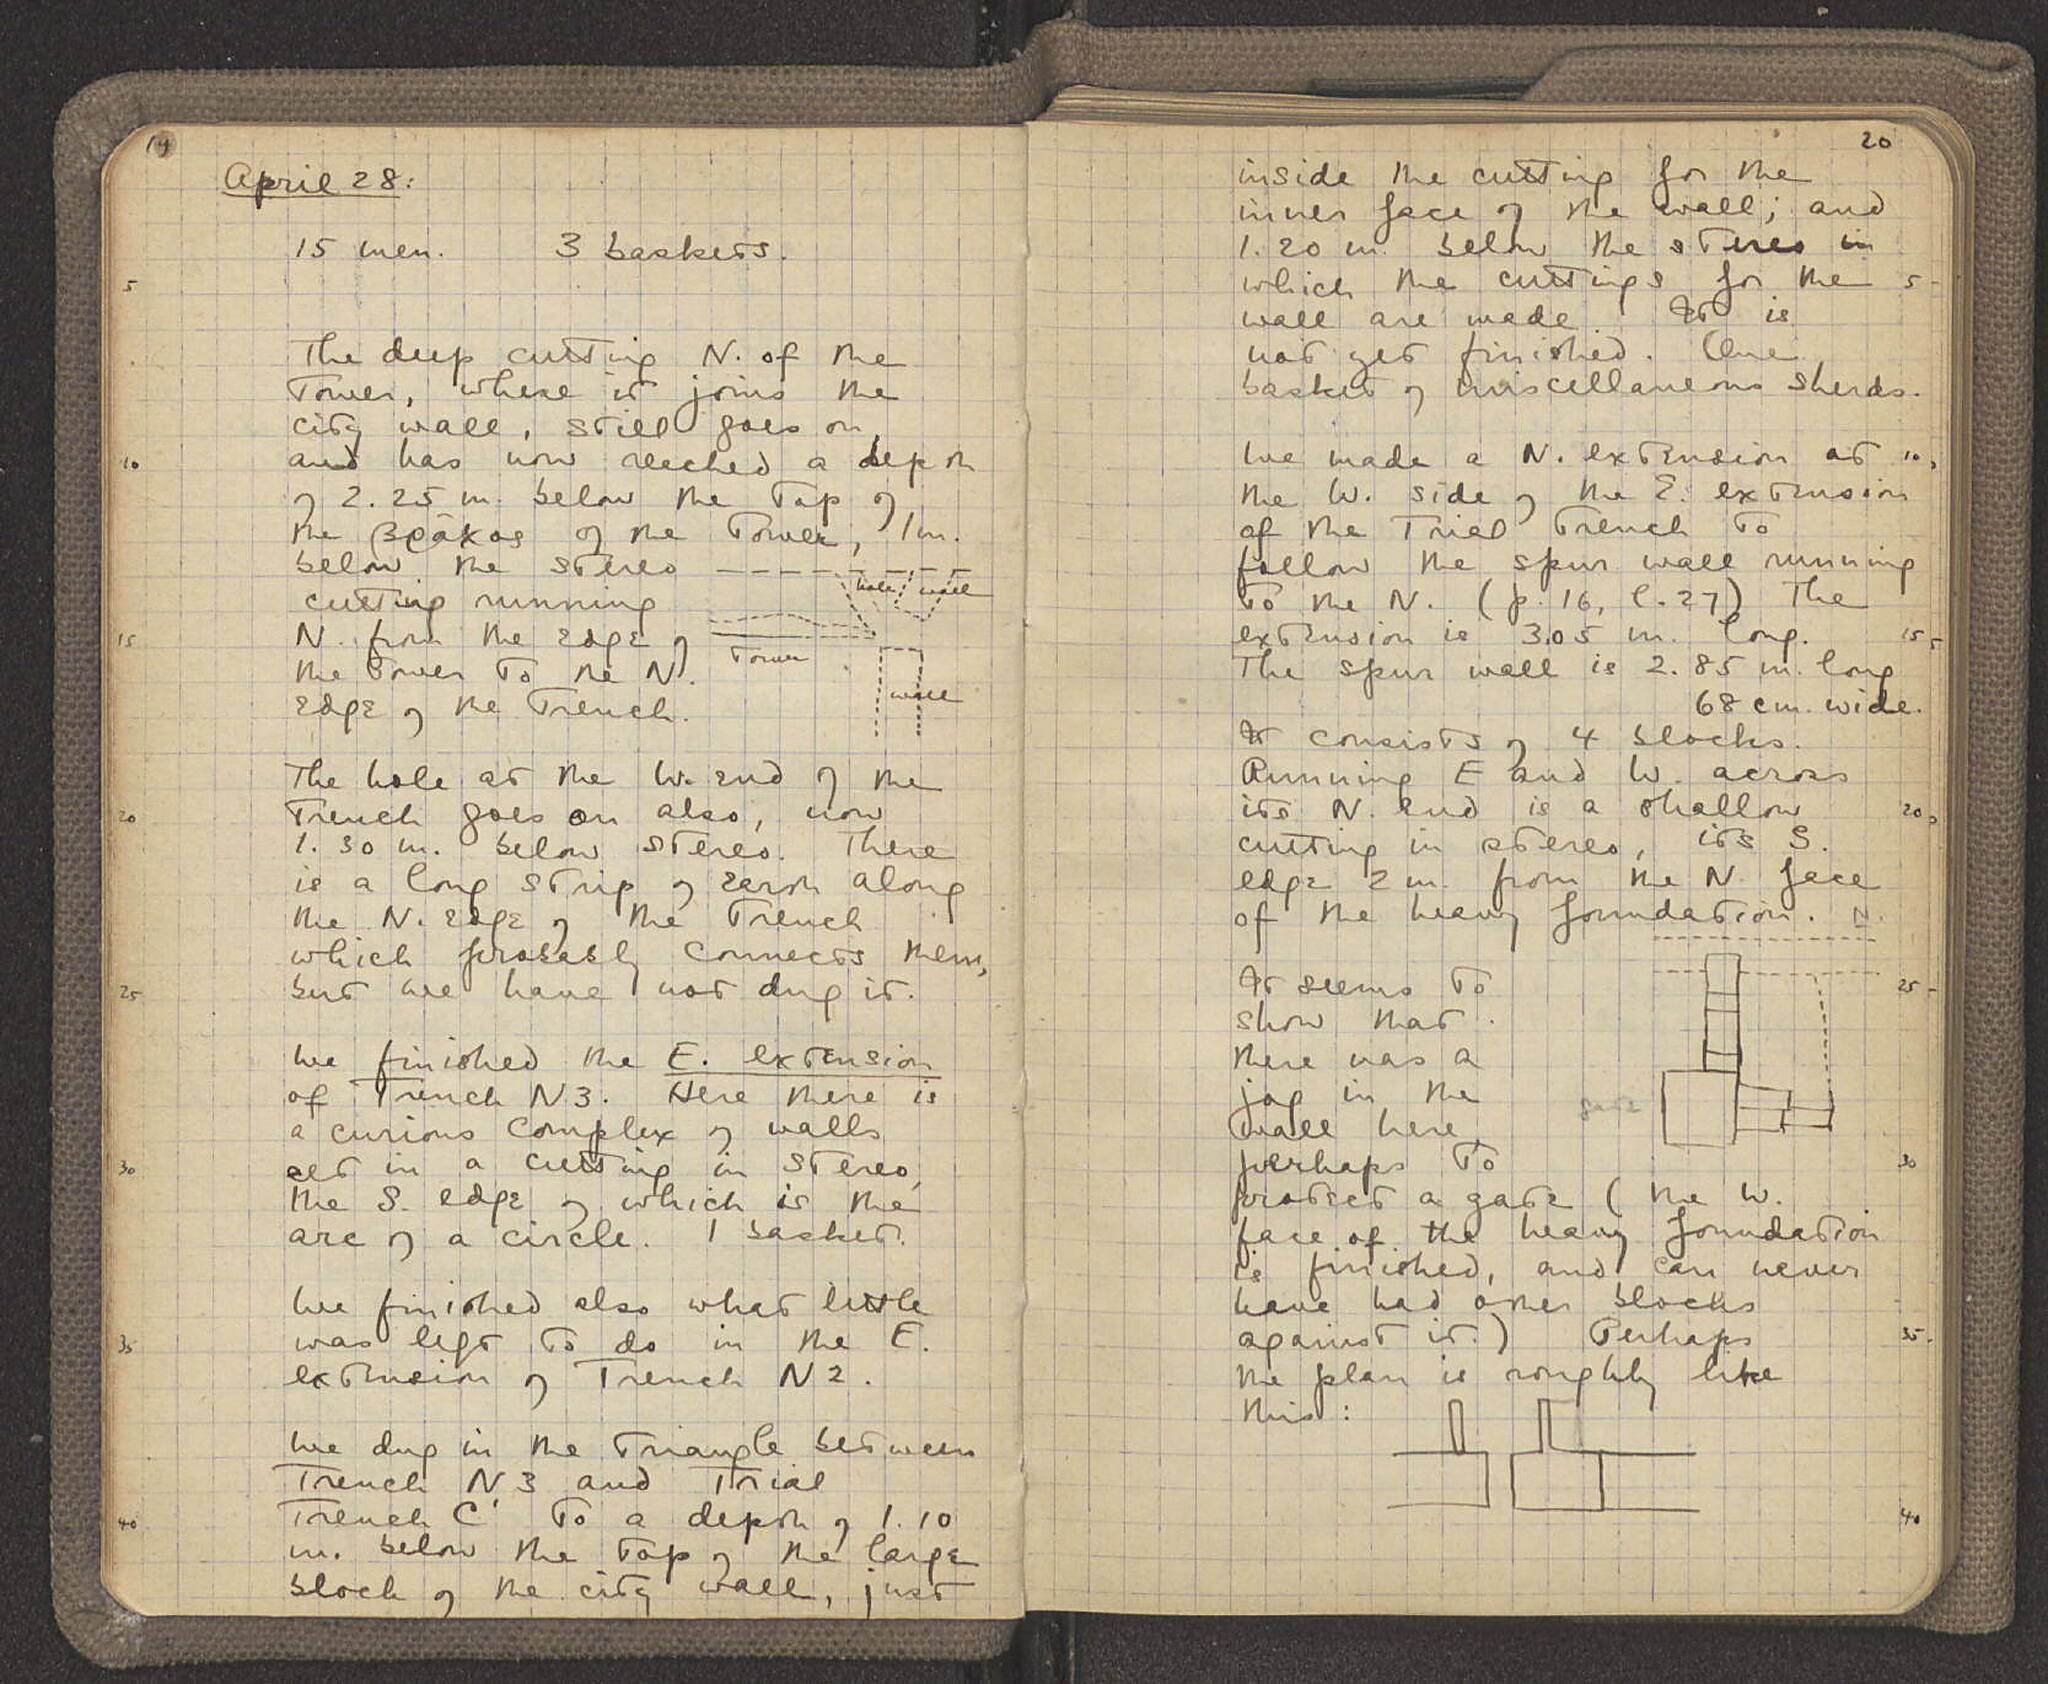 19
April 28:
15 men. 3 baskets.
5
The deep cutting N. of the
Tower, where it joins the
city wall, still goes on,
and has now reached a depth
10
of 2.25 m. below the top of
the βράχος of the Tower, 1m.
below the stereo
hole wall
cutting running
N. from the edge of
15
Tower
the Tower to the N.
edge of the Trench.
wall
The hole at the W. end of the
Trench goes on also, now
20
1.30 m. below stereo. There
is a long strip of earth along
the N. edge of the Trench
which probably connects them,
but we have not dug it.
25
We finished the E. extension
of Trench N3. Here there is
a curious complex of walls
set in a cutting in stereo,
30
the S. edge of which is the
arc of a circle. 1 basket.
We finished also what little
was left to do in the E.
35
extension of Trench N2.
We dug in the triangle between
Trench N3 and Trial
Trench C' to a depth of 1.10
40
m. below the top of the large
block of the city wall, just
20
inside the cutting for the
inner face of the wall; and
1.20 m. below the stereo in
which the cuttings for the
5
wall are made. It is
not yet finished. One
basket of miscellaneous sherds.
We made a N. extension at
10
the W. side of the E. extension
of the Trial Trench to
follow the spur wall running
to the N. (p. 16, l. 27) The
extension is 3.05 m. long.
15
The spur wall is 2.85 m. long
68 cm. wide.
It consists of 4 blocks.
Running E and W. across
its N. end is a shallow
20
cutting in stereo, its S.
edge 2 m. from the N. face
of the heavy foundation.
N.
It seems to
25
show that
there was a
jog in the
gate
wall here,
perhaps to
30
protect a gate (the W.
face of the heavy foundation
is finished, and can never
have had other blocks
against it.) Perhaps
35
the plan is roughly like
this:
40